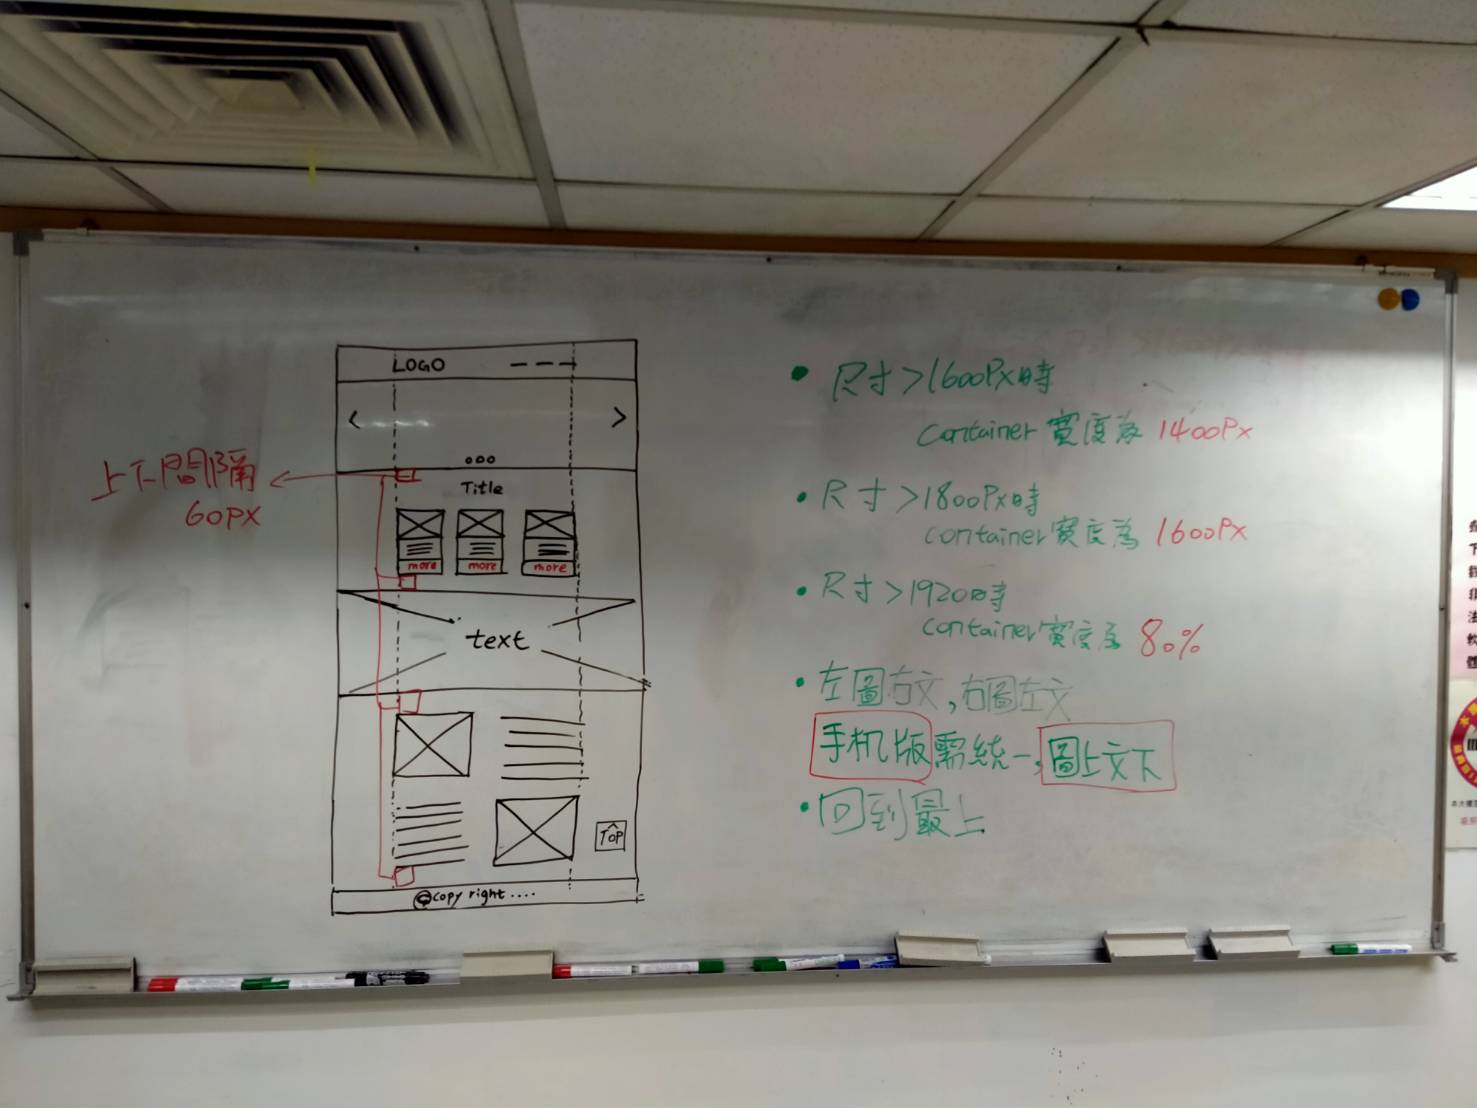 LOGO
<
>
Title
more more more
上下間隔
60PX
text
TOP
©copy right ....
• 尺寸>1600Px時
container 寬度為 1400Px
• 尺寸>1800Px時
container寬度為 1600Px
• 尺寸>1920時
container寬度為 80%
• 左圖右文,右圖左文
手机版需統一,圖上文下
• 回到最上